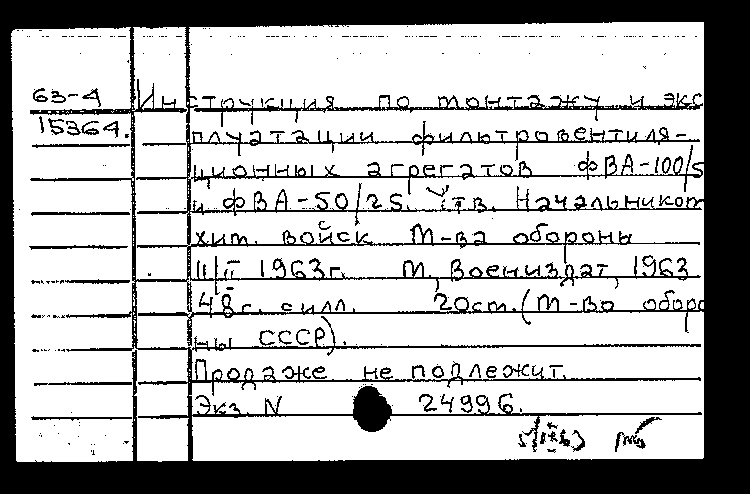 63-4 Инструкция по монтажу и экс
15364. плуатации фильтровентиля-
ционных агрегатов ФВА-100/5
и ФВА-50/25. Утв. Начальником
хим. войск М-ва обороны
11/II 1963г. М, Воениздат, 1963
48с. силл. 20см. (М-во оборо
ны СССР).
Продаже не подлежит.
Экз. N 24996.